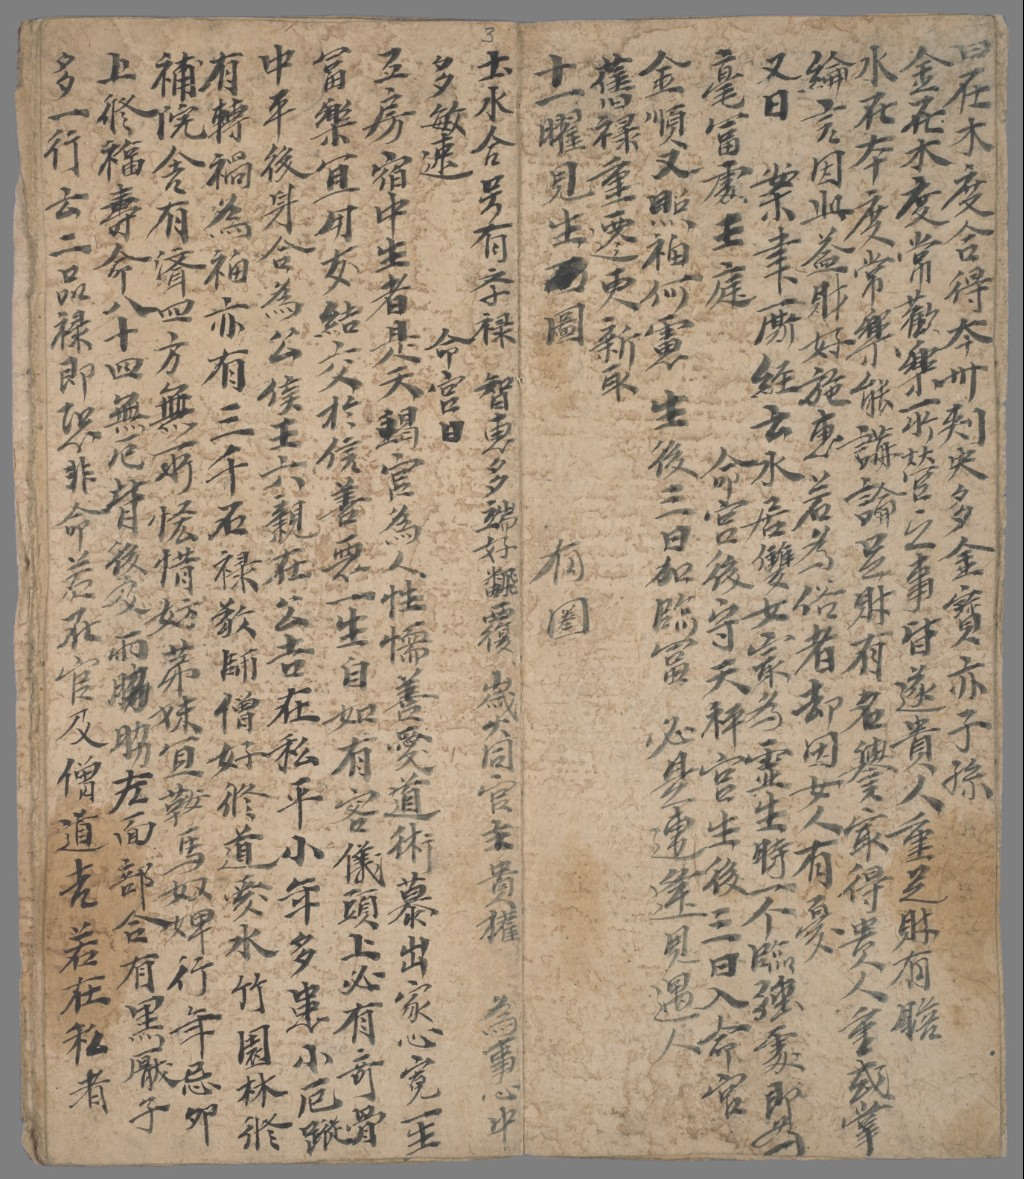 日在木度合得本州刺史多金寶亦子孫
金在木度常歡樂所營之事皆遂貴人重足財有贍
水在本度常樂能講論足財有名譽家得貴人重或掌
綸言因此益財好施惠若為俗者却因女人有憂
又日 業聿斯經云水居雙女家為靈生時一个臨強處即為
毫富處王庭 命宮後守天秤宮生後三日入命宮
金順又照福何慮 生後三日加臨富 必是逢見遇人
舊祿重遷更新取
十一曜見生圖 有圖
3
土水合号有子祿智惠多端好翻覆 歲火同宮主貴權 為事心中
多敏速 命宮日
五房宿中生者是天蝎宮為人性懦善愛道術慕出家心寬主
富樂宜用交結交於信善惡一生自如有容儀頭上必有奇骨
中平後身合為公侯王六親在公吉在私平小年多患小厄蹤
有轉禍為福亦有三千石祿敬師僧好修道愛水竹園林修
補院舍有濟四方無所悋惜好弟妹宜鞍馬奴婢行年忌卯
上修福壽命八十四無厄背後及兩脇脇左面部合有黑黶子
多一行云二品祿即恐非命若在官及僧道吉若在私者